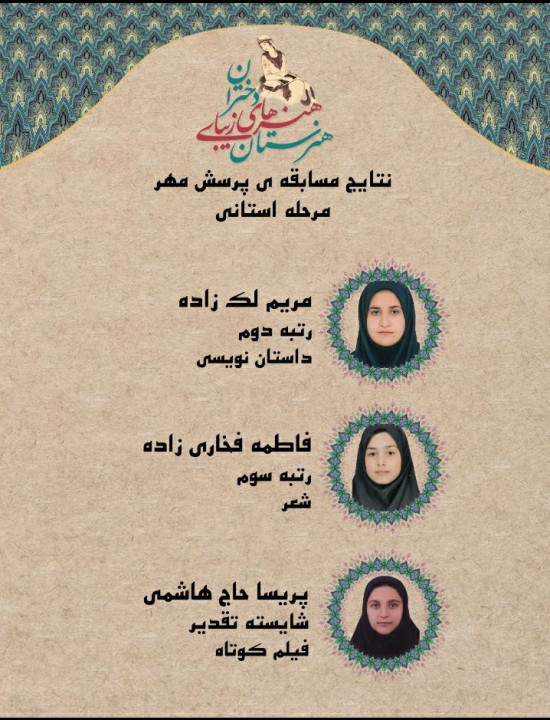 هنرستان هنرهای زیبای دختران
نتایج مسابقه ی پرسش مهر
مرحله استانی
مریم لک زاده
رتبه دوم
داستان نویسی
فاطمه فخاری زاده
رتبه سوم
شعر
پریسا حاج هاشمی
شایسته تقدیر
فیلم کوتاه